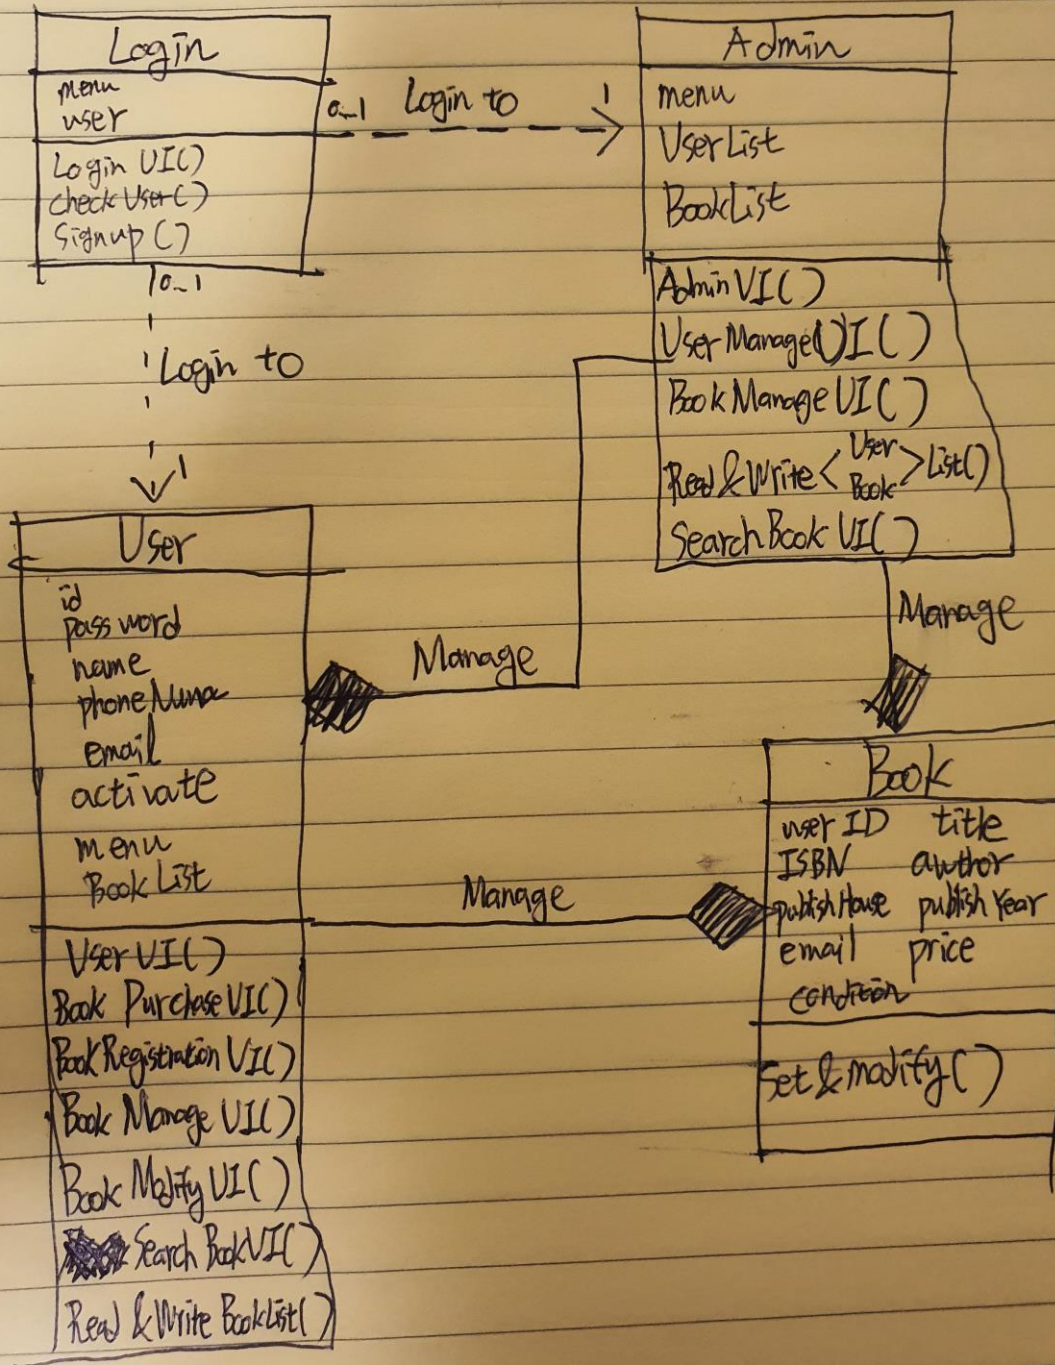 Login
menu
user
Login UI()
checkUser()
Signup()
0..1 Login to 1
Admin
menu
UserList
BookList
AdminUI()
UserManageUI()
BookManageUI()
Read&Write<User Book>List()
SearchBookUI()
0..1
Login to
1
User
id
password
name
email
activate
menu
BookList
UserUI()
Book PurchaseUI()
BookRegistrationUI()
Book ManageUI()
Book ModifyUI()
Search BookUI()
Read &Write BookList()
Manage
Manage
Manage
Book
userID title
ISBN author
publishHouse publishYear
email price
condition
Set&modify()